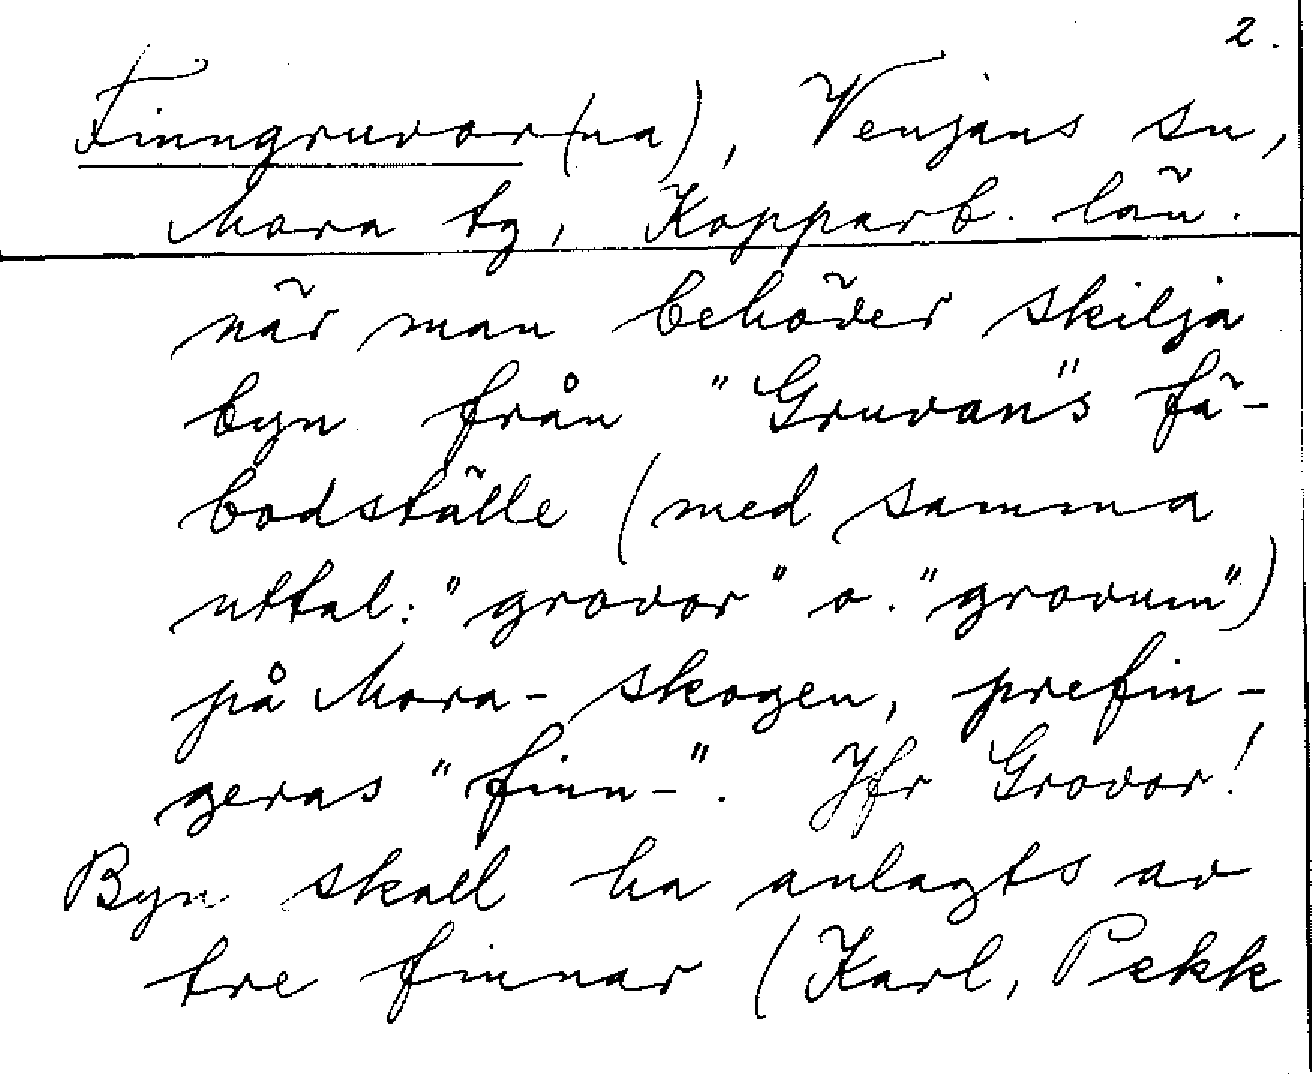 2.
Finngruvor(na), Venjans sn,
Mora tg, Kopparb. län.
när man behöver skilja
byn från "Gruvan"s fä-
bodställe (med samma
uttal: "grovor" o. "grovum")
på Mora-skogen, prefin-
geras "finn-". Jfr Grovor!
Byn skall ha anlagts av
tre finnar (Karl, Pekk